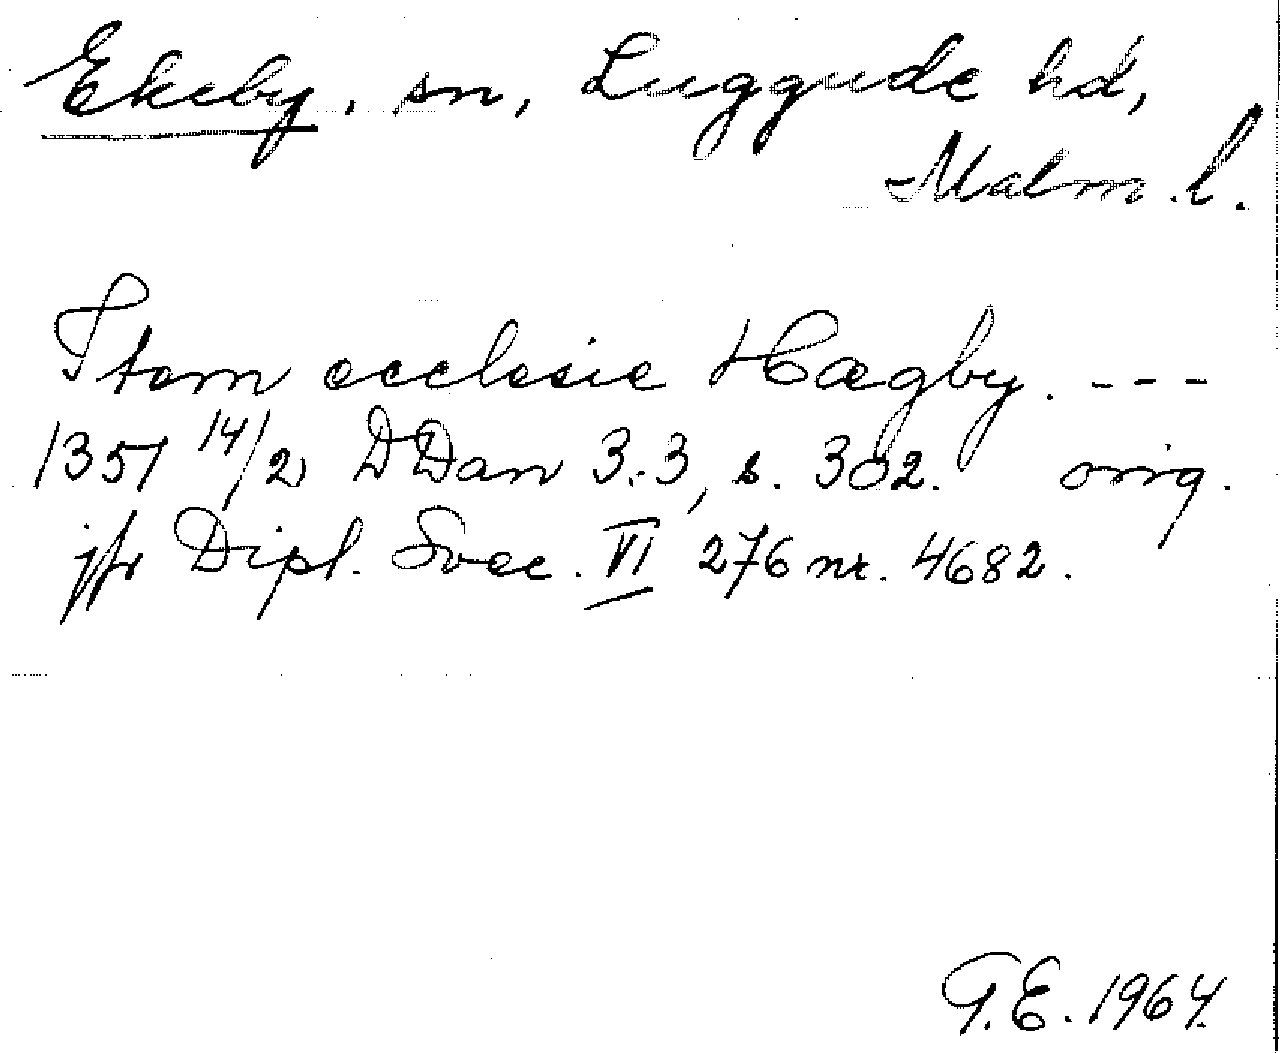 Ekeby, sn, Luggude hd,
Malm. l.
Item ecclesie Hægby. ---
1351 14/2 DDan 3:3, s. 302. orig.
jfr Dipl. Svec. VI 276 nr. 4682.
G.E. 1964.